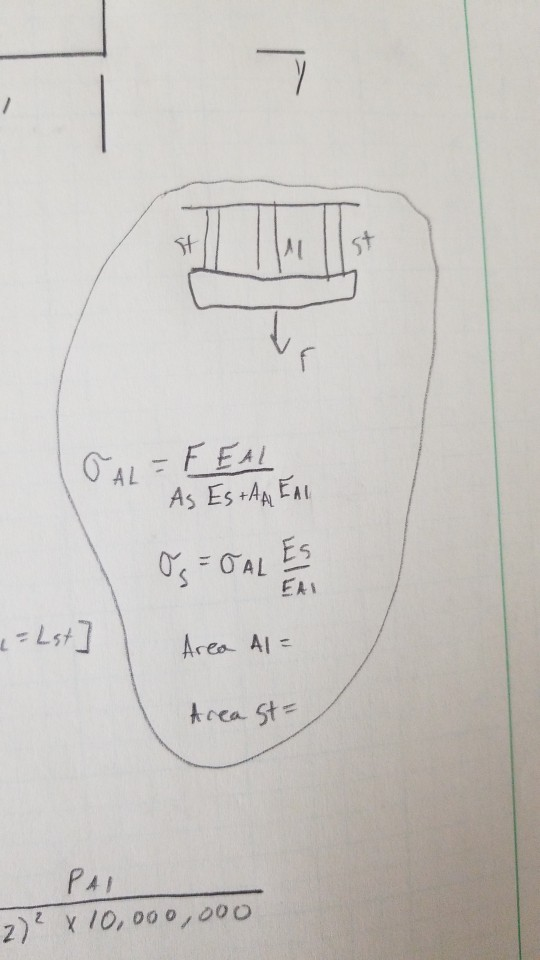 y
st Al st
F
σAL = F EAl / As Es + AAL EAl
σs = σAL Es / EAl
= Lst]
Area Al =
Area St =
PAl
2)² x 10,000,000